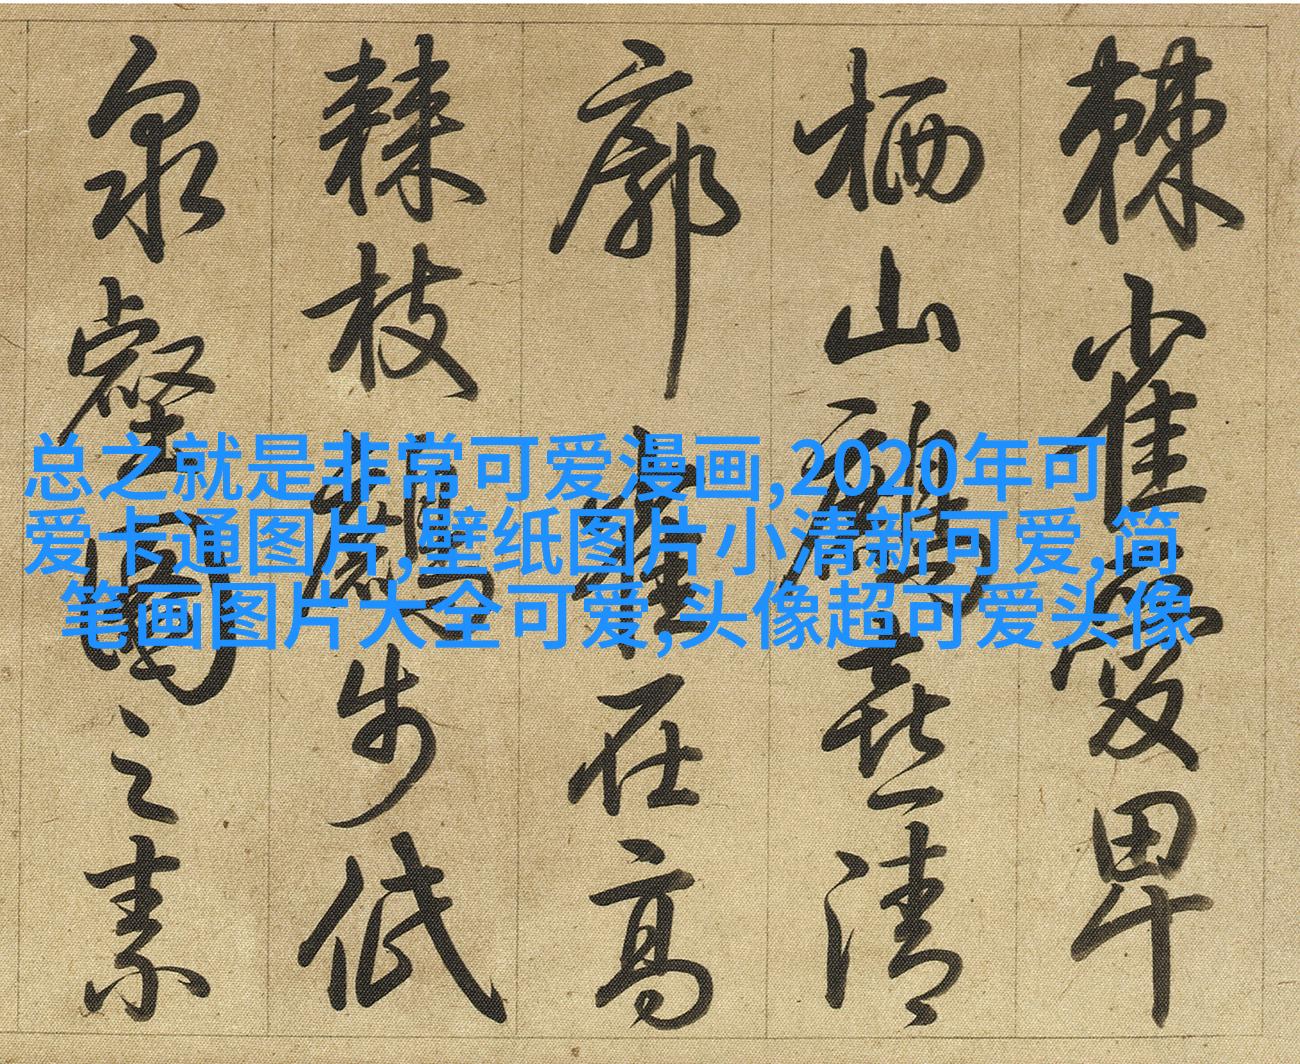 棘雀愛卑
栖山鷓喜清
廓 雀在高
棘枝鷓步低
泉壑園之素
总之就是非常可爱漫画,2020年可
爱卡通图片,壁纸图片小清新可爱,简
笔画图片大全可爱,头像超可爱头像